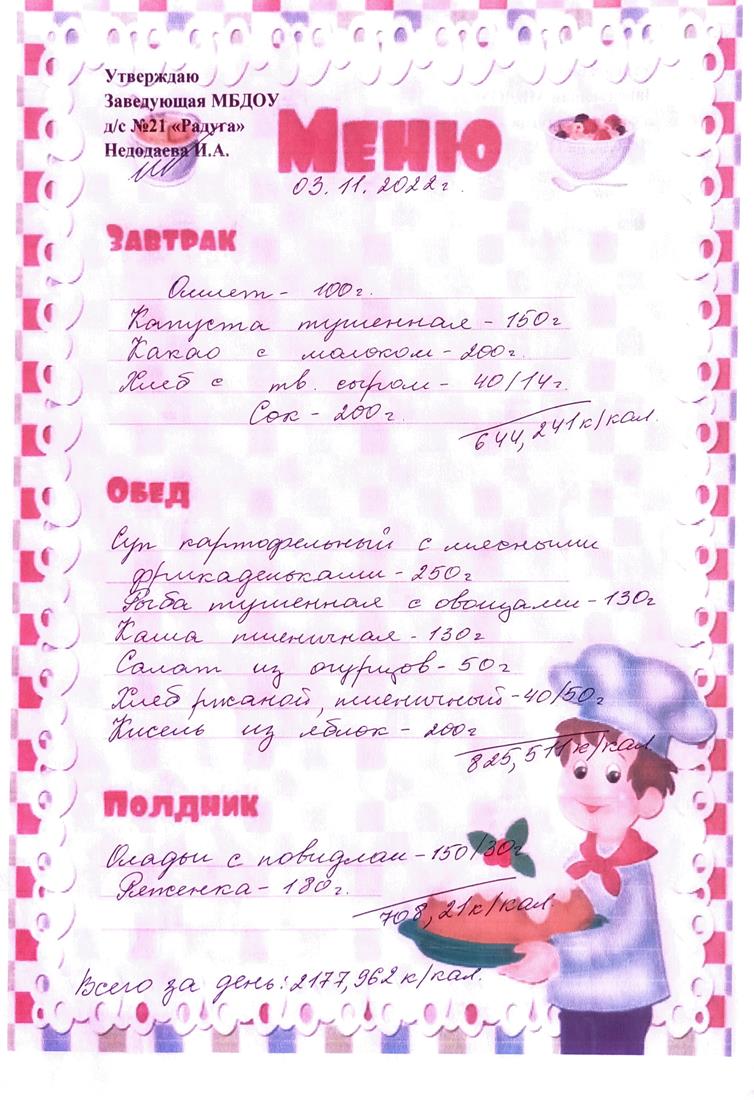 Утверждаю
Заведующая МБДОУ
д/с №21 «Радуга»
Недодаева И.А.
Меню
03.11.2022г.
Завтрак
Омлет - 100г.
Капуста тушенная - 150г
Какао с молоком - 200г.
Хлеб с тв. сыром - 40/14г.
Сок - 200г.
644,241к/кал.
Обед
Суп картофельный с мясными
фрикадельками - 250г
Рыба тушенная с овощами - 130г
Каша пшеничная - 130г
Салат из огурцов - 50г
Хлеб ржаной, пшеничный - 40/50г
Кисель из яблок - 200г
825,511к/кал
Полдник
Оладьи с повидлом - 150/30г
Ряженка - 180г.
708,21к/кал.
Всего за день: 2177,962к/кал.